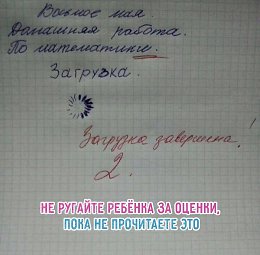 Восьмое мая.
Домашняя работа.
По математики.
Загрузка.
Загрузка завершина!
2.
НЕ РУГАЙТЕ РЕБЁНКА ЗА ОЦЕНКИ,
ПОКА НЕ ПРОЧИТАЕТЕ ЭТО